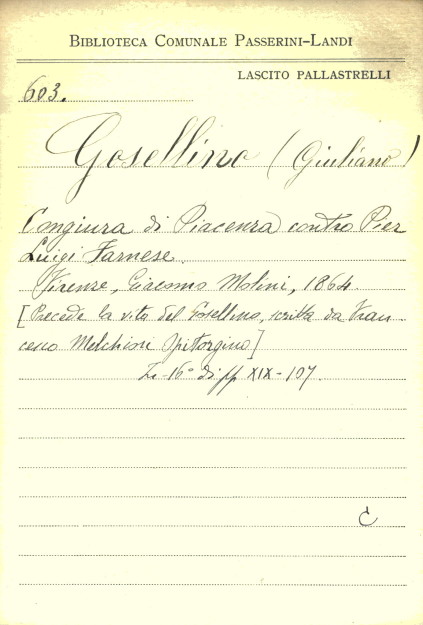 BIBLIOTECA COMUNALE PASSERINI-LANDI
LASCITO PALLASTRELLI
603.
Gosellino (Giuliano)
Congiura di Piacenza contro Pier
Luigi Farnese.
Firenze, Giacomo Molini, 1864.
[Precede la vita del Gosellino, scritta da Fran-
cesco Melchiori Opitergino]
In-16° di pp XIX-107.
C